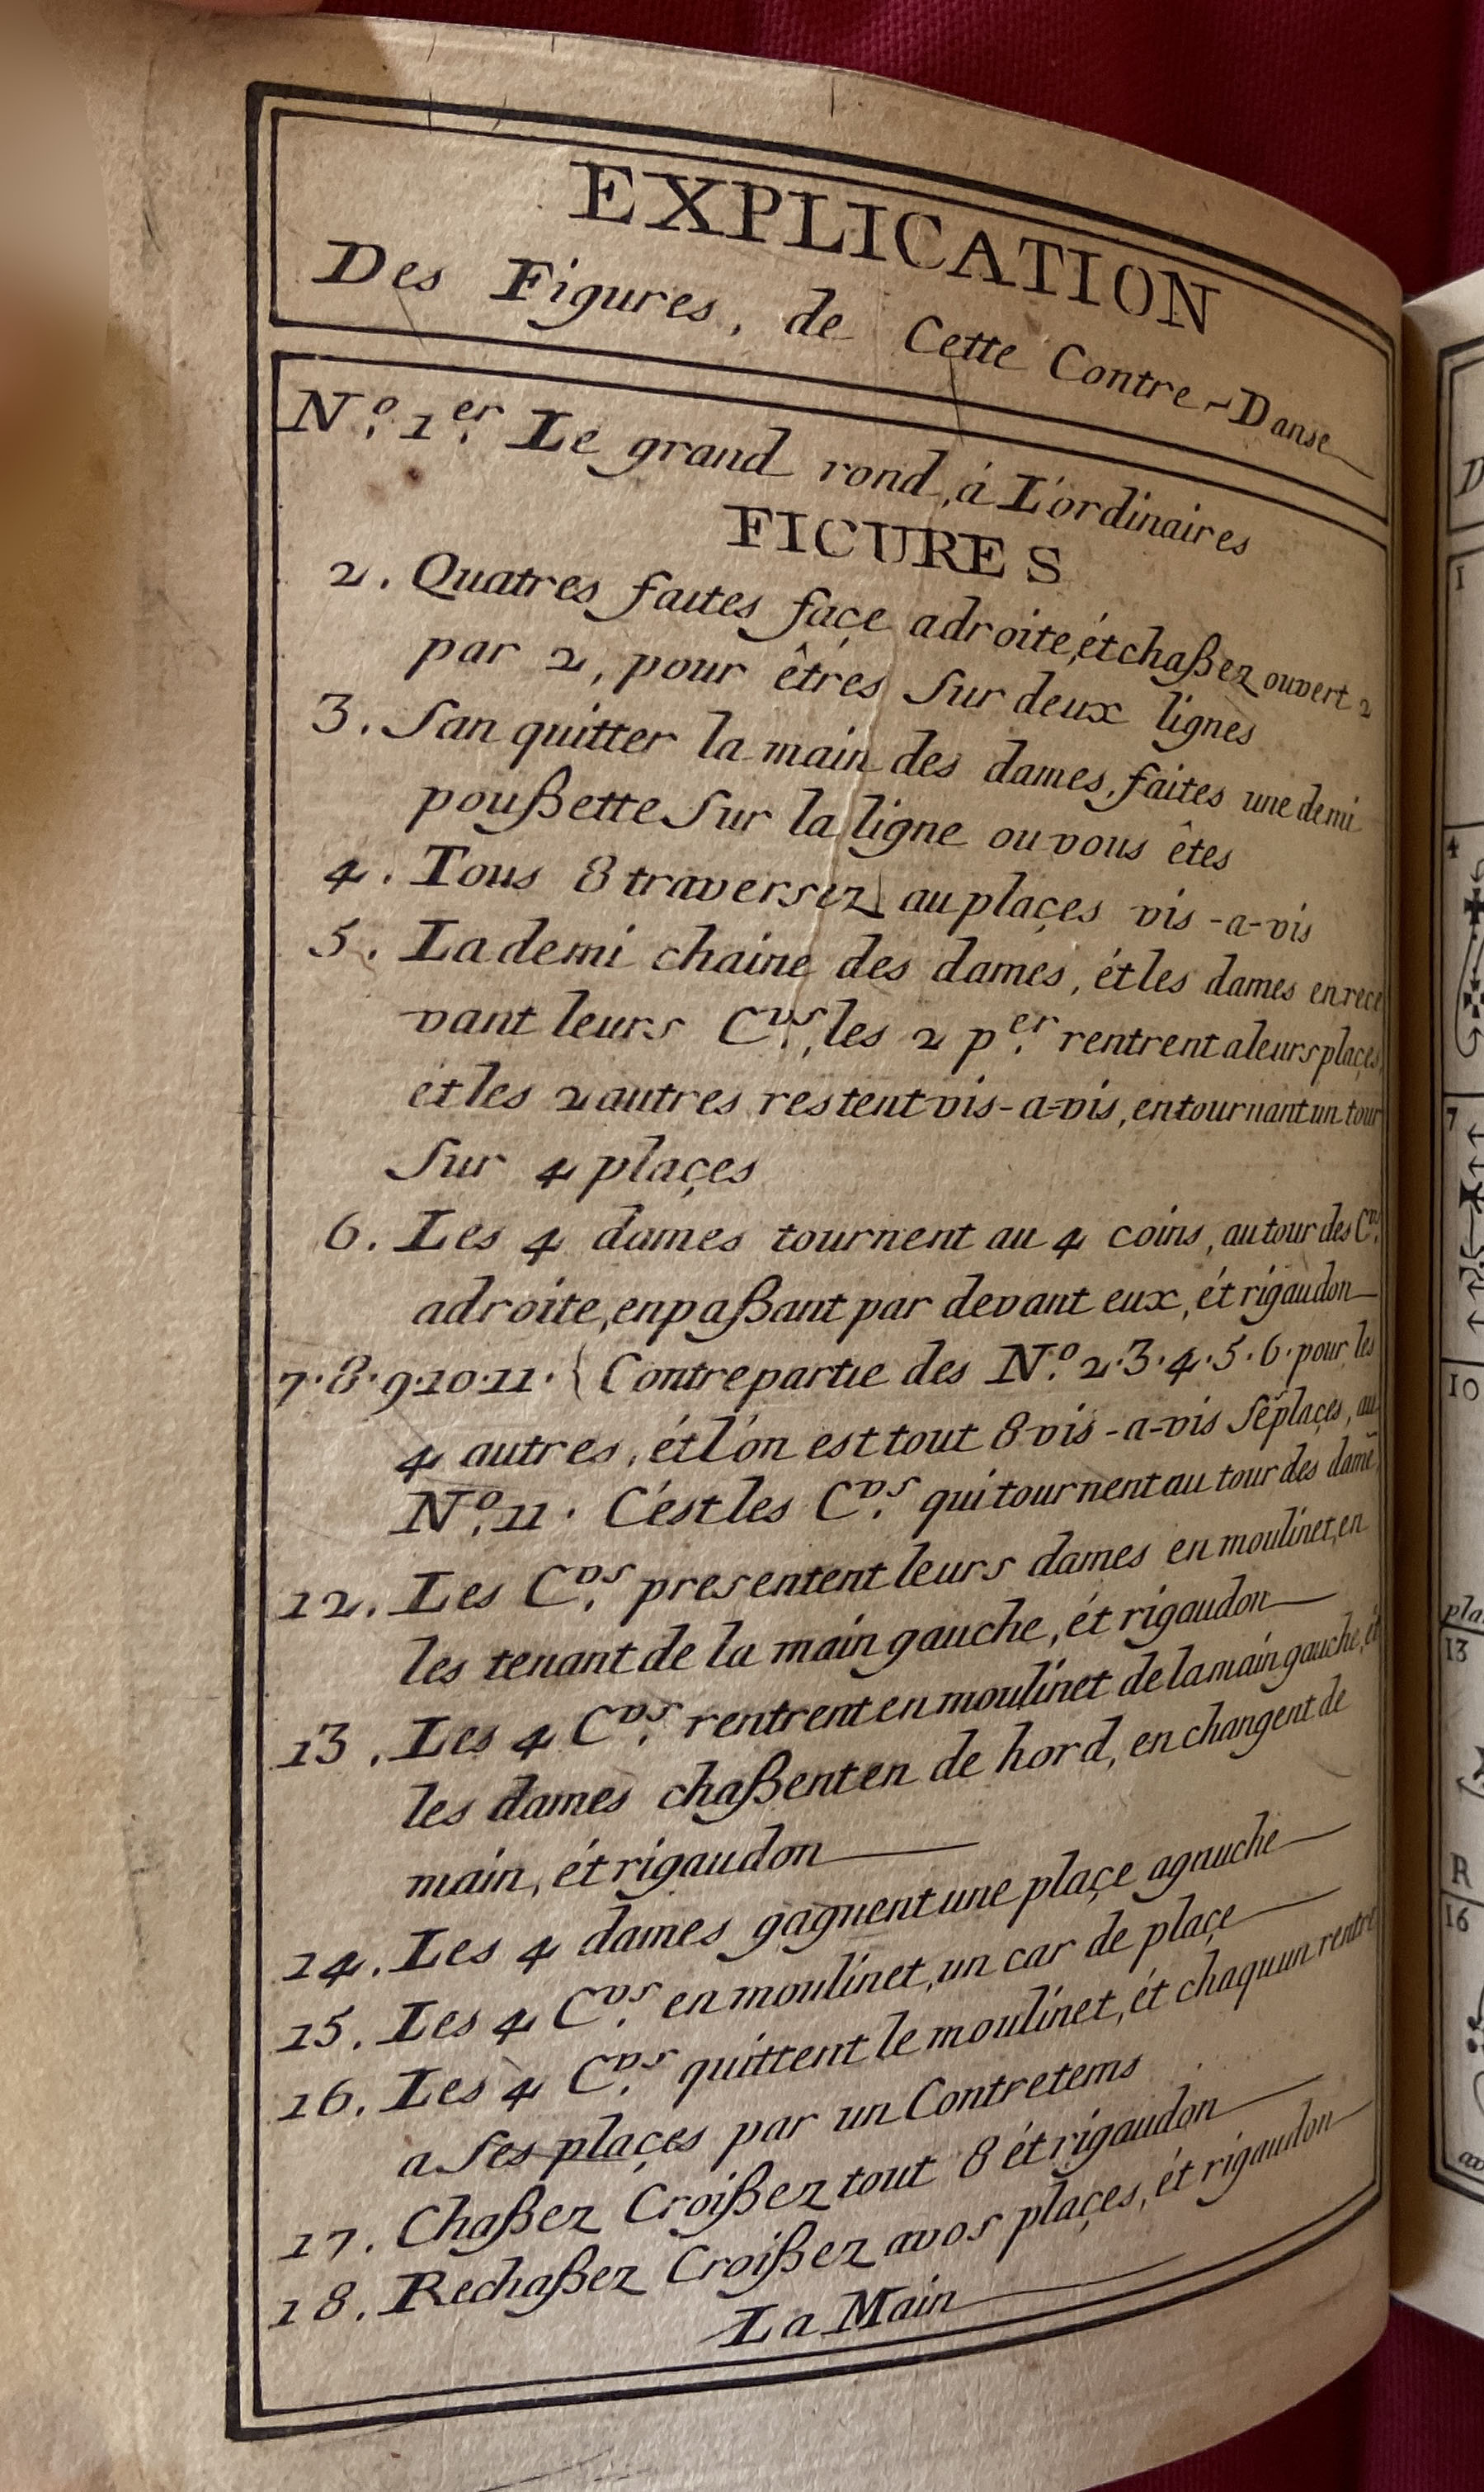 EXPLICATION
Des Figures, de Cette Contre-Danse
N.º 1.er Le grand rond, á L'ordinaires
FICURES
2. Quatres faites façe adroite, ét chaßez ouvert 2
par 2, pour êtres sur deux lignes
3. San quitter la main des dames, faites une demi
poußette sur la ligne ou vous êtes
4. Tous 8 traversez au plaçes vis-a-vis
5. La demi chaine des dames, ét les dames en rece
vant leurs C.vs, les 2 p.er rentrent a leurs plaçes
ét les 2 autres restent vis-a-vis, en tournant un tour
sur 4 plaçes
6. Les 4 dames tournent au 4 coins, au tour des C.vs
adroite, en paßant par devant eux, ét rigaudon
7.8.9.10.11. { Contre partie des N.º 2.3.4.5.6. pour les
4 autres, ét l'ón est tout 8 vis-a-vis sé plaçes, au
N.º 11. C'ést les C.vs qui tournent au tour des dame
12. Les C.vs presentent leurs dames en moulinet, en
les tenant de la main gauche, ét rigaudon
13. Les 4 C.vs rentrent en moulinet de la main gauche, ét
les dames chaßent en de hord, en changent de
main, ét rigaudon
14. Les 4 dames gagnent une plaçe agauche
15. Les 4 C.vs en moulinet, un car de plaçe
16. Les 4 C.vs quittent le moulinet, ét chaquun rentre
a ses plaçes par un Contretems
17. Chaßez Croißez tout 8 ét rigaudon
18. Rechaßez Croißez avos plaçes, ét rigaudon
La Main
1
4
7
10
pla
13
R
16